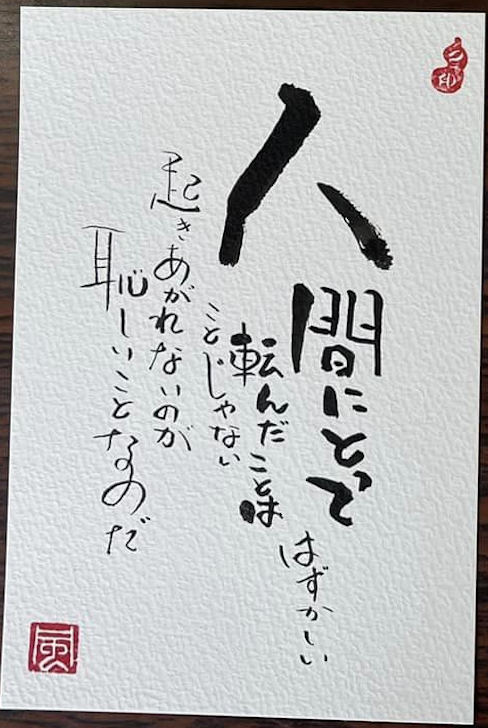 人間にとって
転んだことは
はずかしい
ことじゃない
起きあがれないのが
恥しいことなのだ